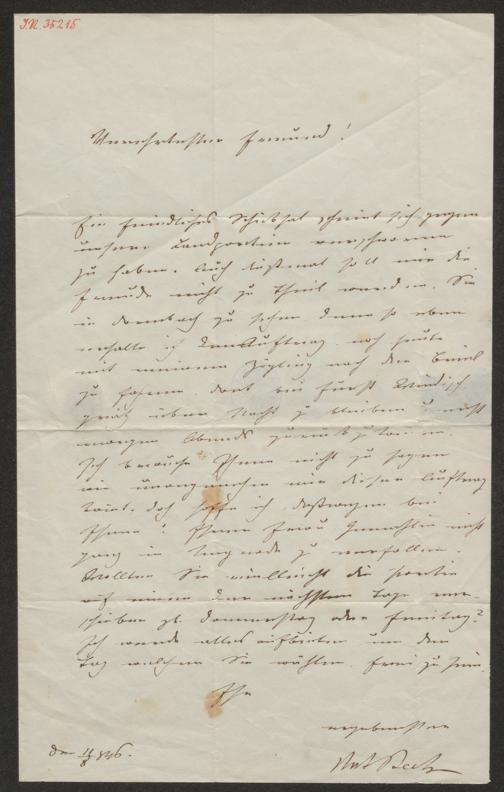 I.N. 35215
Verehrtester Freund!
Ein feindliches Schicksal scheint sich gegen
unsere Landpartien verschworen
zu haben. Auch diesmal soll mir die
Freude nicht zu Theil werden, Sie
in Dornbach zu sehen denn so eben
erhalte ich den Auftrag noch heute
mit meinem Zögling nach der
zu fahren dort bei Fürst Windisch
grätz über Nacht zu bleiben u erst
morgen Abends zurück zu
Ich brauche Ihnen nicht zu sagen
wie unangenehm mir dieser Auftrag
kömt, doch hoffe ich deßwegen bei
Ihnen u Ihrer Frau Gemahlin nicht
ganz in Ungnade zu verfallen.
Wollten Sie vielleicht die Partie
auf einen der nächsten Tage ver-
schieben zb. Donnerstag oder Freitag?
Ich werde alles aufbieten um den
Tag welchen Sie wählen frei zu sein.
Ihr
ergebenster
den 846.